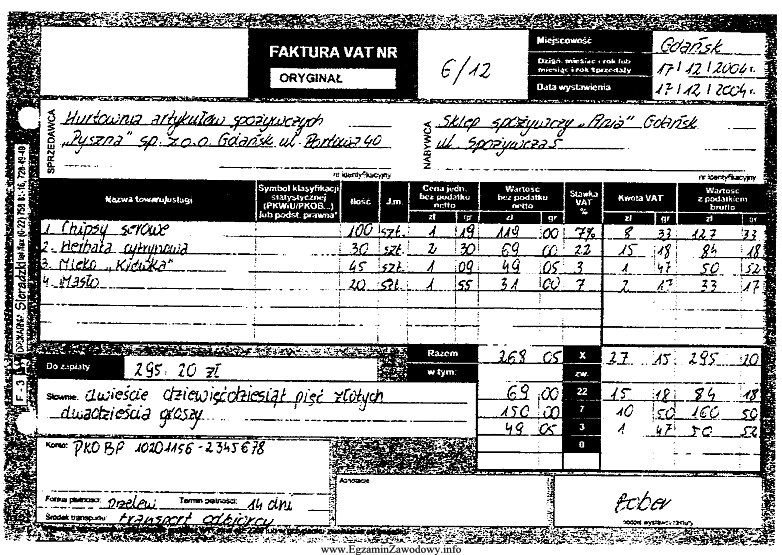 FAKTURA VAT NR
ORYGINAŁ
6/12
Miejscowość Gdańsk
Dzień, miesiąc i rok lub miesiąc i rok sprzedaży 17 | 12 | 2004 r.
Data wystawienia 17 | 12 | 2004 r.
SPRZEDAWCA
Hurtownia artykułów spożywczych
„Pyszna" sp. z o.o. Gdańsk ul. Portowa 40
nr identyfikacyjny
NABYWCA
Sklep spożywczy „Ania" Gdańsk
ul. Spożywcza 5
nr identyfikacyjny
Nazwa towaru/usługi Symbol klasyfikacji statystycznej (PKWiU/PKOB...) lub podst. prawna* Ilość J.m. Cena jedn. bez podatku netto Wartość bez podatku netto Stawka VAT % Kwota VAT Wartość z podatkiem brutto
zł gr zł gr zł gr zł gr
1. Chipsy serowe 100 szt. 1 19 119 00 7% 8 33 127 33
2. Herbata cytrynowa 30 szt. 2 30 69 00 22 15 18 84 18
3. Mleko „Krówka" 45 szt. 1 09 49 05 3 1 47 50 52
4. Masło 20 szt. 1 55 31 00 7 2 17 33 17
Do zapłaty 295.20 zł
Razem 268 05 X 27 15 295 20
w tym: zw.
69 00 22 15 18 84 18
150 00 7 10 50 160 50
49 05 3 1 47 50 52
0
Słownie: dwieście dziewięćdziesiąt pięć złotych
dwadzieścia groszy
Konto: PKO BP 10201156-2345678
Forma płatności: przelew Termin płatności: 14 dni
Środek transportu: transport odbiorcy
Adnotacje
podpis wystawcy faktury
F-3
DRUKARNIA Sieradzki
www.EgzaminZawodowy.info